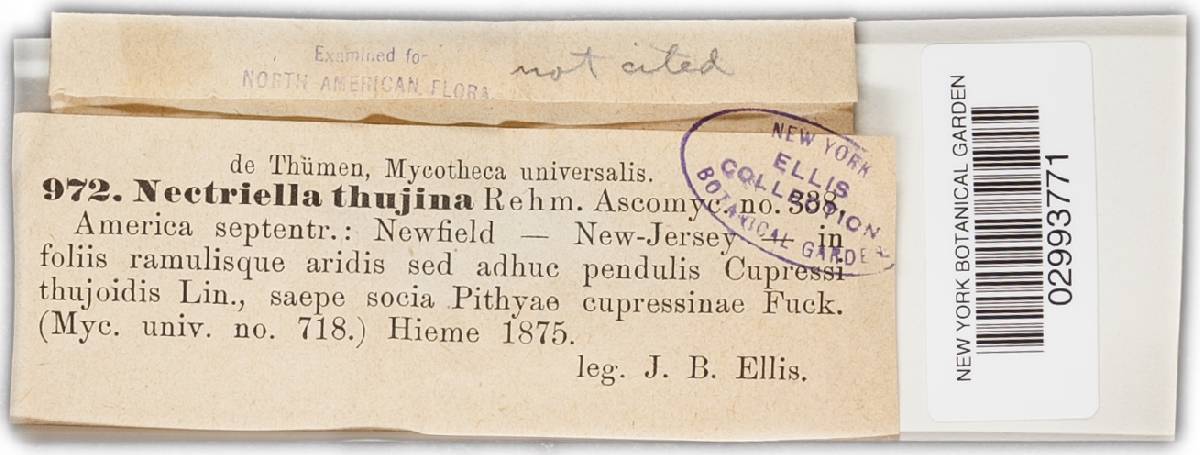 Examined for
NORTH AMERICAN FLORA
not cited
de Thümen, Mycotheca universalis.
972. Nectriella thujina Rehm. Ascomyc. no. 388.
America septentr.: Newfield — New-Jersey — in
foliis ramulisque aridis sed adhuc pendulis Cupressi
thujoidis Lin., saepe socia Pithyae cupressinae Fuck.
(Myc. univ. no. 718.) Hieme 1875.
leg. J. B. Ellis.
NEW YORK
ELLIS
COLLECTION
BOTANICAL GARDEN
NEW YORK BOTANICAL GARDEN
02993771